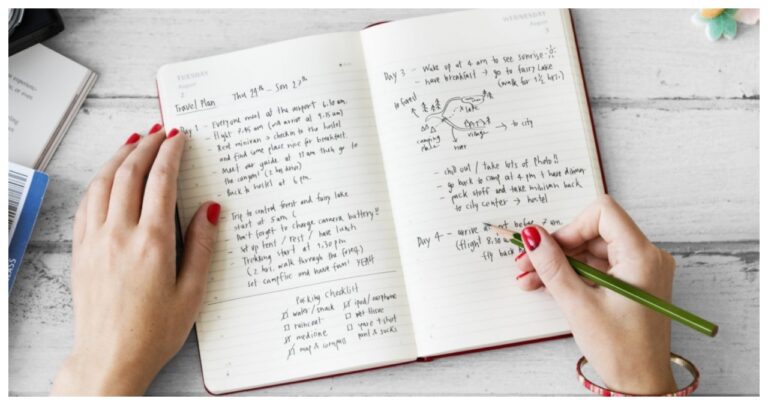 TUESDAY
August
Travel Plan Thu 24th - Sun 27th
Day 1 - Everyone meet at the airport 6.10 am.
- flight 7.45 am (will arrive at 9.15 am)
- Rent minivan > checkin to the hostel
and find some place nice for breakfast.
- Meet our guide at 11 am then go to
the canyon! (2 hrs drive)
- Back to hostel at 6 pm.
- Trip to forest and fairy lake
start at 5 am
- Don't forget to charge camera battery!!
- Set up tent / rest / have lunch
- Trekking start at 1.30 pm
(2 hrs. walk through the forest)
- set campfire and have fun!
Packing checklist
water/snack
ipod/earphone
raincoat
wet tissue
medicine
spare t-shirt
map & compass
pant & socks
WEDNESDAY
August
3
Day 3 - Wake up at 4 am to see sunrise
- have breakfast → go to fairy lake
(walk for 1 1/2 hrs.)
to forest
lake
camping
place
river
village
→ to city
- chill out / take lots of photo!!
- go back to camp at 4 pm & have dinner
- pack stuff and take minivan back
to city center → hostel
Day 4 - arrive at before 7 am.
(flight 8.30
fly back